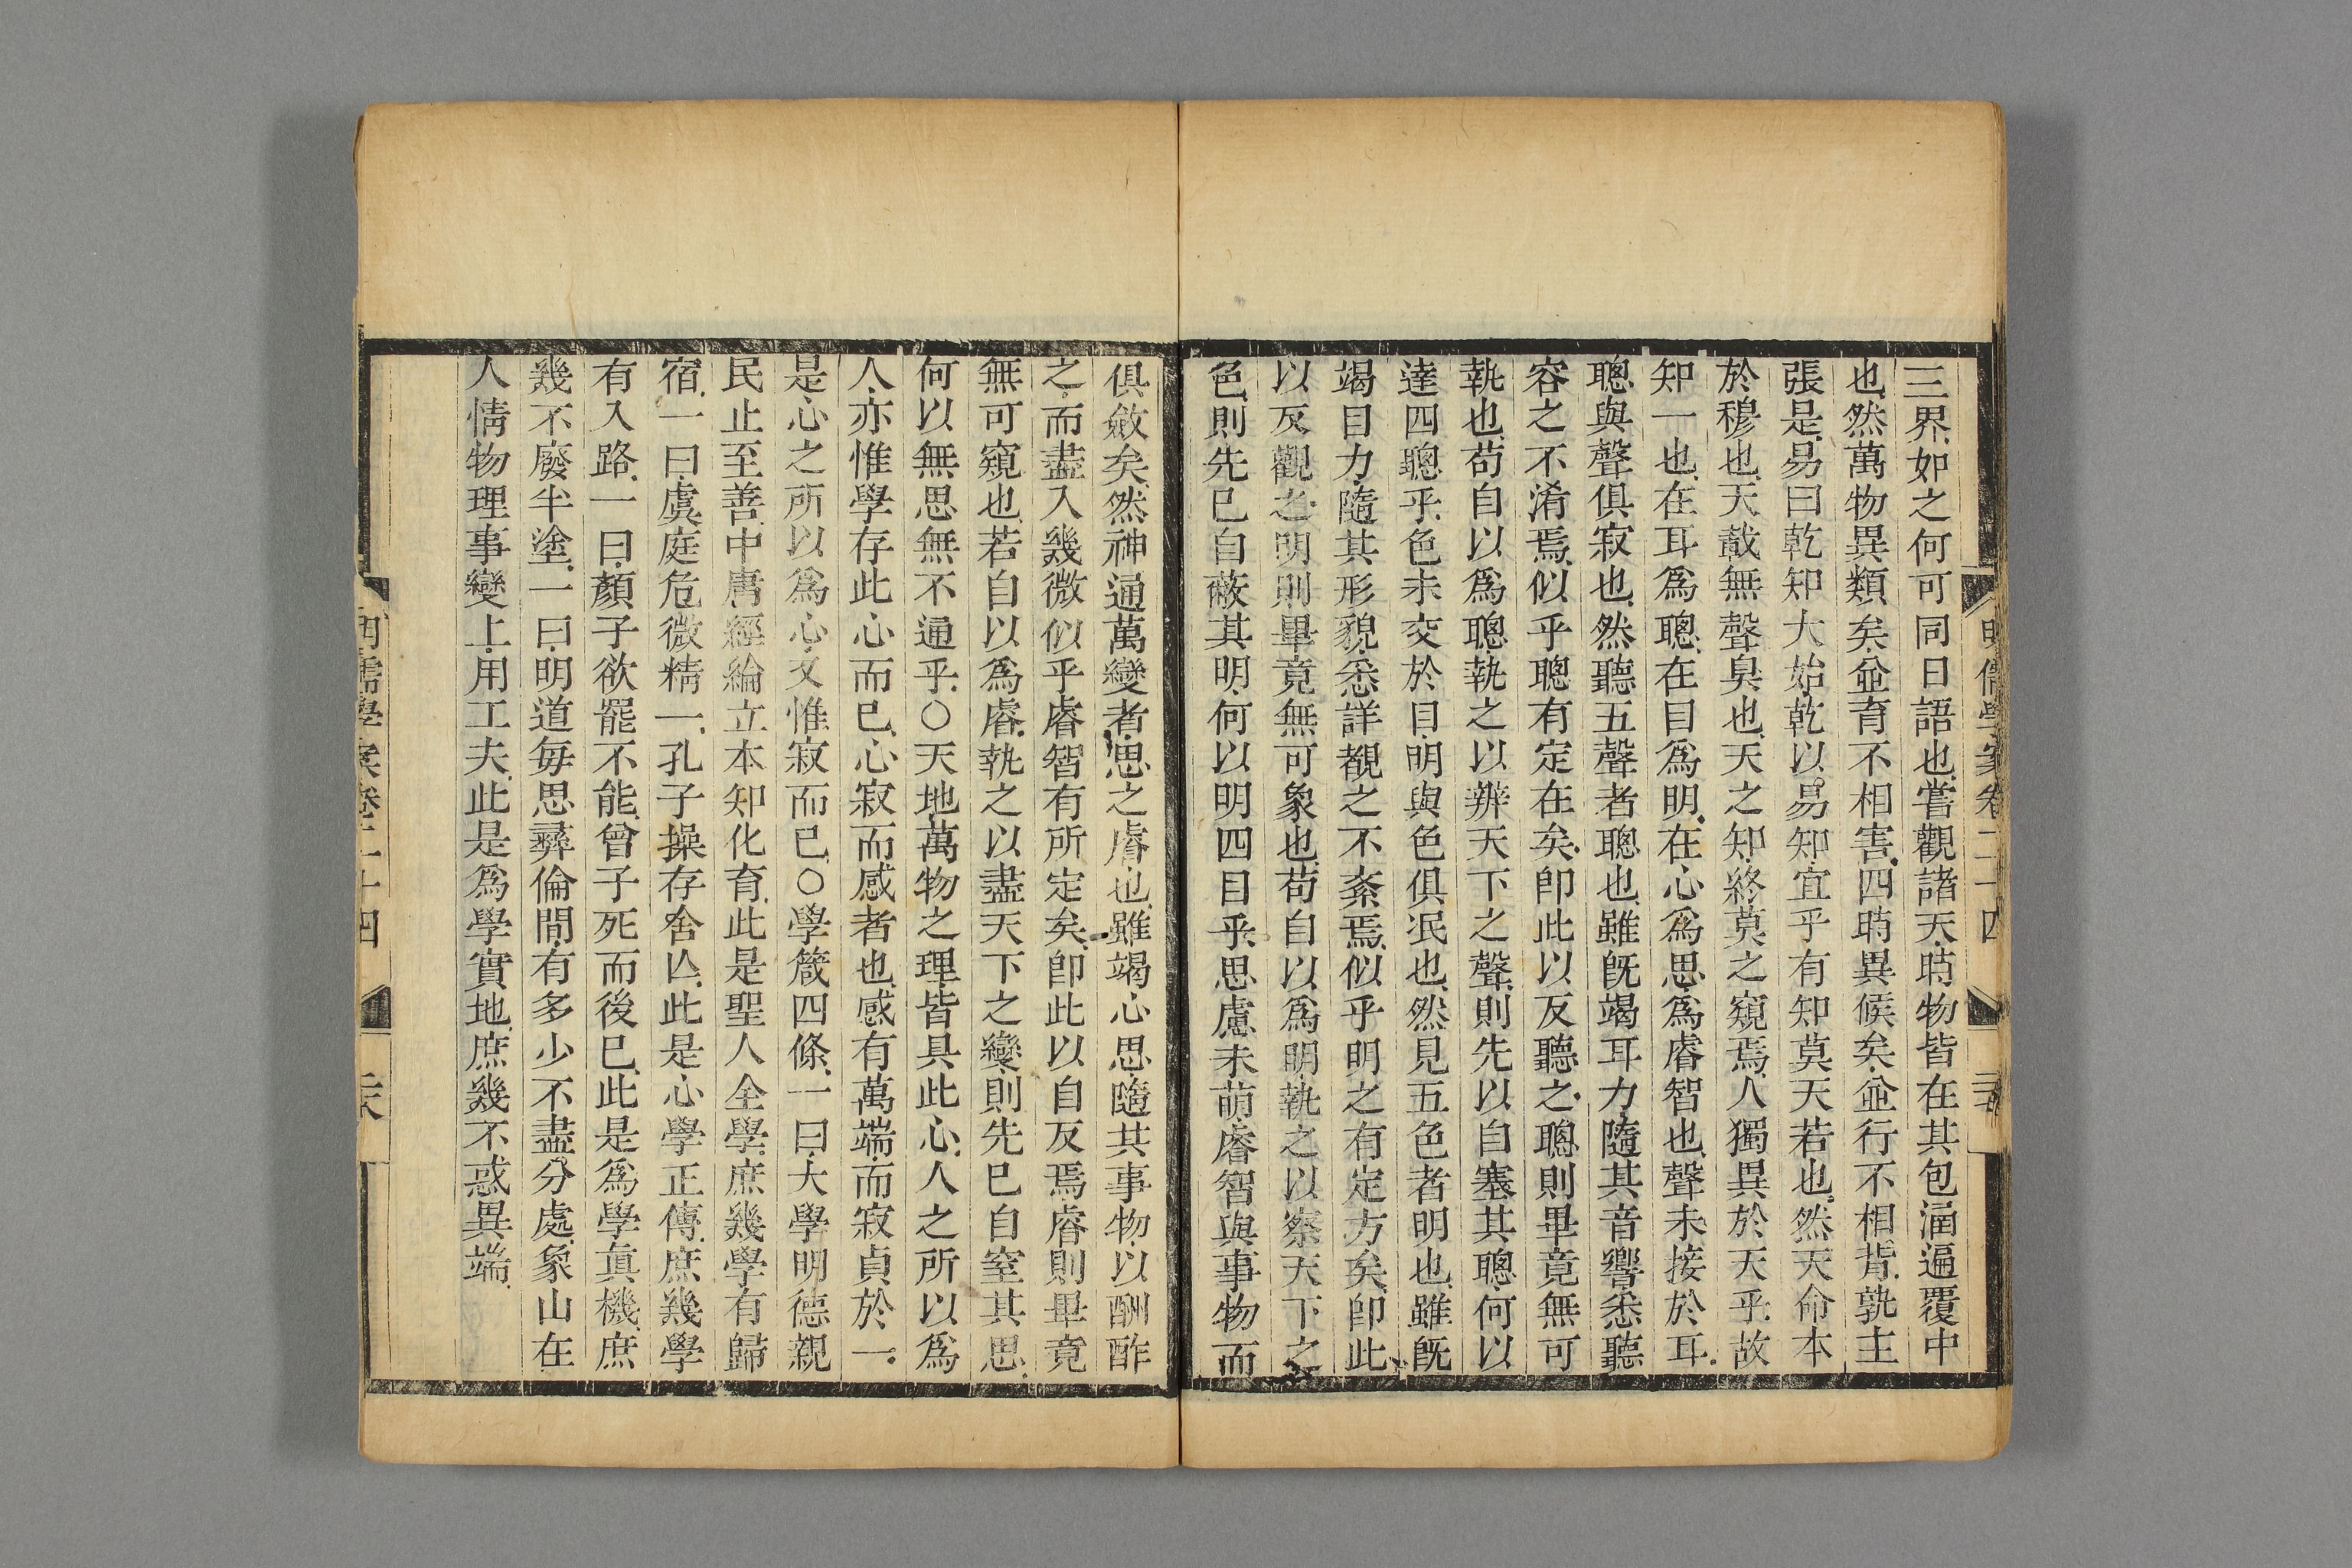 明儒學案卷二十四
三界如之何可同日語也嘗觀諸天時物皆在其包涵遍覆中
也然萬物異類矣並育不相害四時異候矣並行不相背孰主
張是易曰乾知大始乾以易知宜乎有知莫天若也然天命本
於穆也天載無聲臭也天之知終莫之窺焉人獨異於天乎故
知一也在耳爲聰在目爲明在心爲思爲睿智也聲未接於耳
聰與聲俱寂也然聽五聲者聰也雖旣竭耳力隨其音響悉聽
容之不淆焉似乎聰有定在矣卽此以反聽之聰則畢竟無可
執也苟自以爲聰執之以辨天下之聲則先以自塞其聰何以
達四聰乎色未交於目明與色俱泯也然見五色者明也雖旣
竭目力隨其形貌悉詳覩之不紊焉似乎明之有定方矣卽此
以反觀之明則畢竟無可象也苟自以爲明執之以察天下之
色則先已自蔽其明何以明四目乎思慮未萌睿智與事物而
俱斂矣然神通萬變者思之睿也雖竭心思隨其事物以酬酢
之而盡入幾微似乎睿智有所定矣卽此以自反焉睿則畢竟
無可窺也若自以爲睿執之以盡天下之變則先已自窒其思
何以無思無不通乎○天地萬物之理皆具此心人之所以爲
人亦惟學存此心而已心寂而感者也感有萬端而寂貞於一
是心之所以爲心又惟寂而已○學箴四條一曰大學明德親
民止至善中庸經綸立本知化育此是聖人全學庶幾學有歸
宿一曰虞庭危微精一孔子操存舍亾此是心學正傳庶幾學
有入路一曰顏子欲罷不能曾子死而後已此是爲學真機庶
幾不廢半塗一曰明道每思彞倫間有多少不盡分處象山在
人情物理事變上用工夫此是爲學實地庶幾不惑異端
明儒學案卷二十四